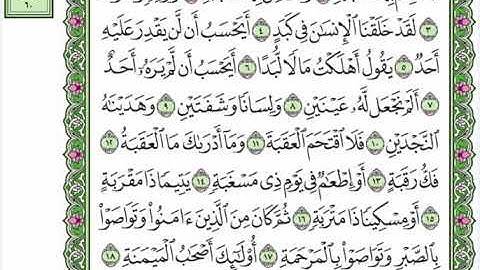 ٦٠
٣ لَقَدْ خَلَقْنَا ٱلْإِنسَٰنَ فِى كَبَدٍ ٤ أَيَحْسَبُ أَن لَّن يَقْدِرَ عَلَيْهِ
أَحَدٌ ٥ يَقُولُ أَهْلَكْتُ مَالًا لُّبَدًا ٦ أَيَحْسَبُ أَن لَّمْ يَرَهُۥٓ أَحَدٌ
٧ أَلَمْ نَجْعَل لَّهُۥ عَيْنَيْنِ ٨ وَلِسَانًا وَشَفَتَيْنِ ٩ وَهَدَيْنَٰهُ
ٱلنَّجْدَيْنِ ١٠ فَلَا ٱقْتَحَمَ ٱلْعَقَبَةَ ١١ وَمَآ أَدْرَىٰكَ مَا ٱلْعَقَبَةُ ١٢
فَكُّ رَقَبَةٍ ١٣ أَوْ إِطْعَٰمٌ فِى يَوْمٍ ذِى مَسْغَبَةٍ ١٤ يَتِيمًا ذَا مَقْرَبَةٍ
١٥ أَوْ مِسْكِينًا ذَا مَتْرَبَةٍ ١٦ ثُمَّ كَانَ مِنَ ٱلَّذِينَ ءَامَنُوا۟ وَتَوَاصَوْا۟
بِٱلصَّبْرِ وَتَوَاصَوْا۟ بِٱلْمَرْحَمَةِ ١٧ أُو۟لَٰٓئِكَ أَصْحَٰبُ ٱلْمَيْمَنَةِ ١٨